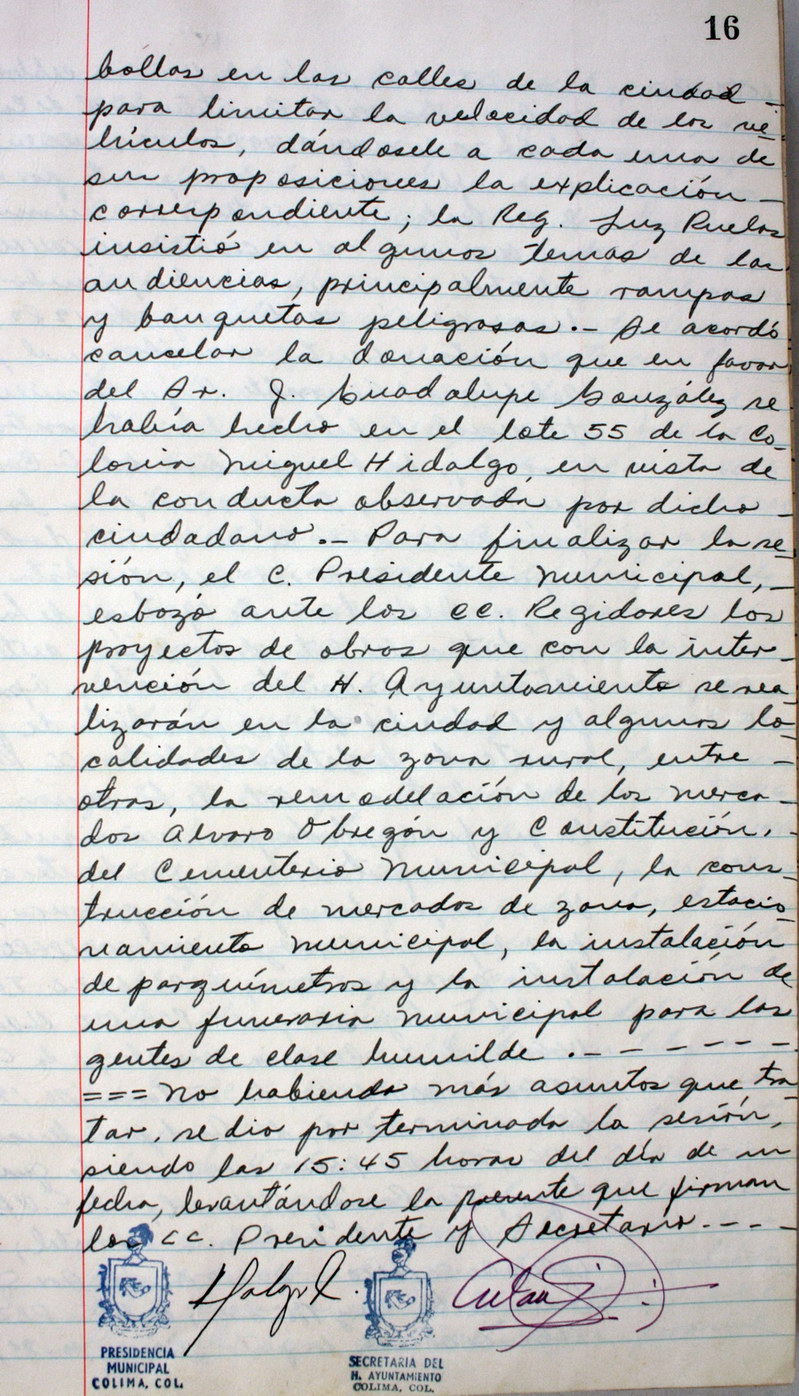 16
bollas en las calles de la ciudad -
para limitar la velocidad de los ve-
hículos, dándosele a cada una de
sus proposiciones la explicación -
correspondiente; la Reg. Luz Ruelas
insistió en algunos temas de las
audiencias, principalmente rampas
y banquetas peligrosas.- Se acordó
cancelar la donación que en favor
del Sr. J. Guadalupe González se
había hecho en el lote 55 de la Co-
lonia Miguel Hidalgo, en vista de
la conducta observada por dicho -
ciudadano.- Para finalizar la se-
sión, el C. Presidente Municipal, -
esbozó ante los CC. Regidores los
proyectos de obras que con la inter-
vención del H. Ayuntamiento se rea-
lizarán en la ciudad y algunas lo-
calidades de la zona rural, entre -
otras, la remodelación de los merca-
dos Alvaro Obregón y Constitución,
del Cementerio Municipal, la cons-
trucción de mercados de zona, estacio-
namiento municipal, la instalación
de parquímetros y la instalación de
una funeraria municipal para las
gentes de clase humilde.- - - - - -
=== No habiendo más asuntos que tra-
tar, se dio por terminada la sesión,
siendo las 15:45 horas del día de su
fecha, levantándose la presente que firman
los CC. Presidente y Secretario.- - -
PRESIDENCIA
MUNICIPAL
COLIMA, COL.
SECRETARIA DEL
H. AYUNTAMIENTO
COLIMA, COL.